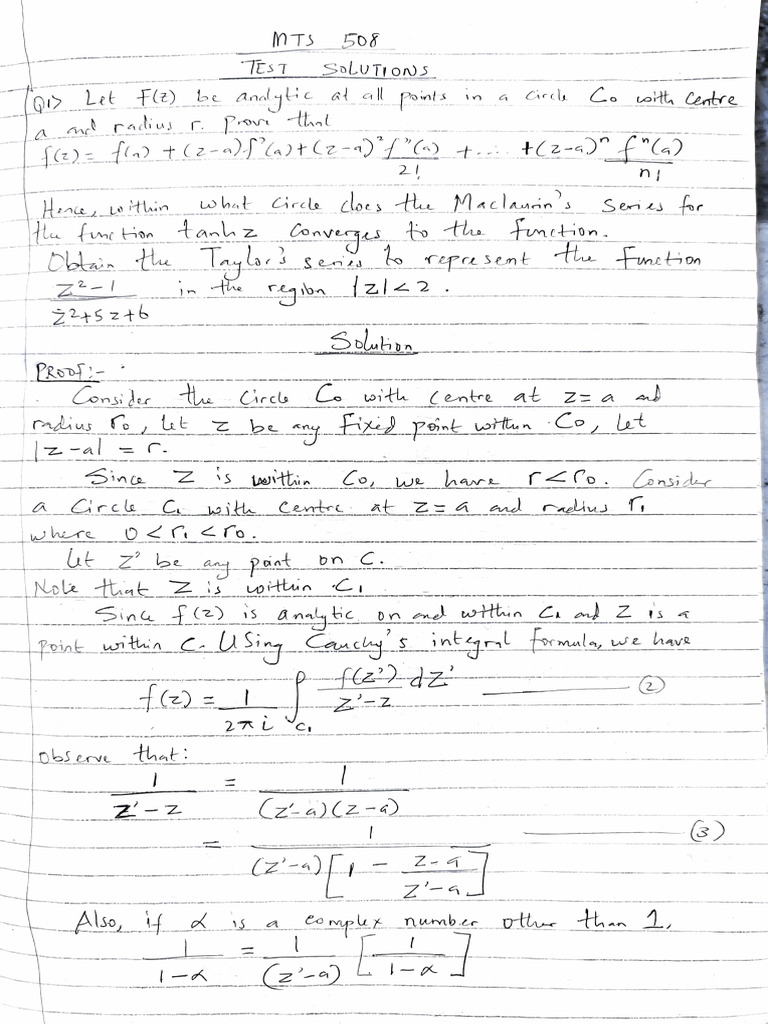 MTS 508
TEST SOLUTIONS
Q1> Let F(z) be analytic at all points in a circle Co with centre
a and radius r. prove that
f(z) = f(a) + (z-a)f'(a) + (z-a)² f''(a)/2! + ..... + (z-a)ⁿ fⁿ(a)/n!
Hence, within what circle does the Maclaurin's Series for
the function tanhz converges to the function.
Obtain the Taylor's series to represent the function
z²-1/z²+5z+6 in the region |z|<2.
Solution
PROOF:-
Consider the circle Co with centre at z=a and
radius ro, let z be any fixed point within Co, let
|z-a| = r.
Since z is within Co, we have r<ro. Consider
a circle C1 with centre at z=a and radius r1
where 0<r1<ro.
Let z' be any point on C.
Note that z is within C1
Since f(z) is analytic on and within C1 and z is a
point within C. Using Cauchy's integral formula, we have
f(z) = 1/2πi ∫C1 f(z')/z'-z dz' ——— (2)
observe that:
1/z'-z = 1/(z'-a)(z-a)
= 1/(z'-a)[1 - z-a/z'-a] ——— (3)
Also, if α is a complex number other than 1,
1/1-α = 1/(z'-a) [1/1-α]